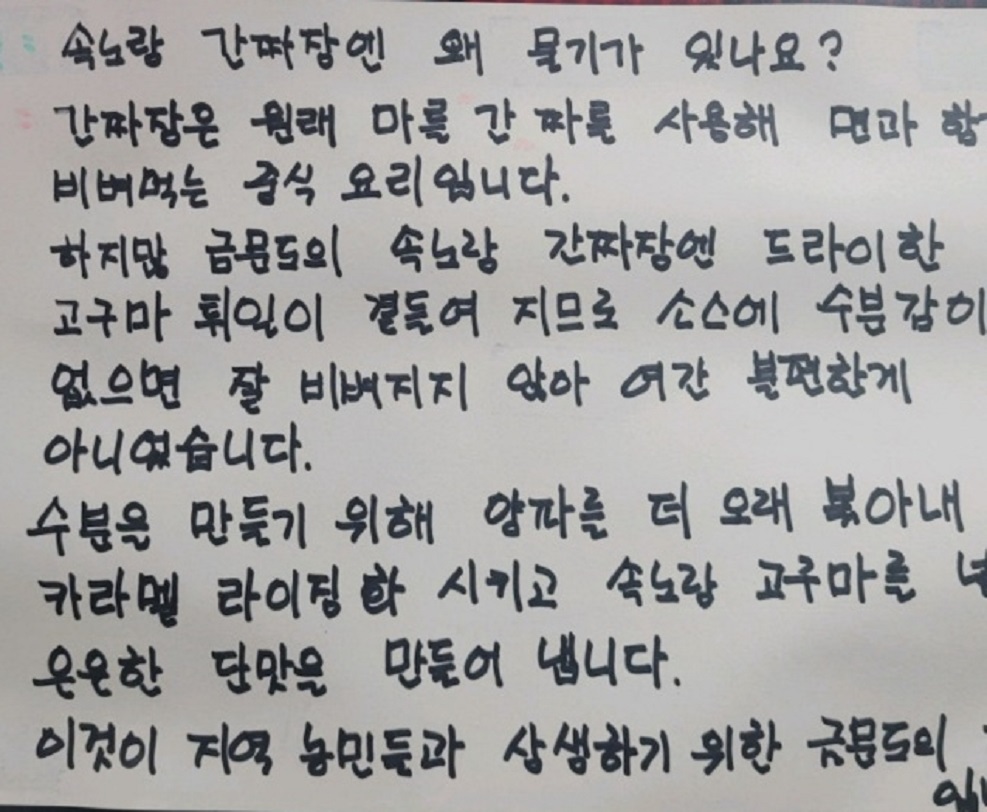 속노랑 간짜장엔 왜 물기가 있나요?
간짜장은 원래 마를 간 짜를 사용해 면과 함
비벼먹는 중식 요리입니다.
하지많 금문도의 속노랑 간짜장엔 드라이한
고구마 튀일이 곁들여 지므로 소스에 수분감이
없으면 잘 비벼지지 않아 여간 불편한게
아니였습니다.
수분을 만들기 위해 양파를 더 오래 볶아내
카라멜 라이징 화 시키고 속노랑 고구마를
은은한 단맛을 만들어 냅니다.
이것이 지역 농민들과 상생하기 위한 금문도의